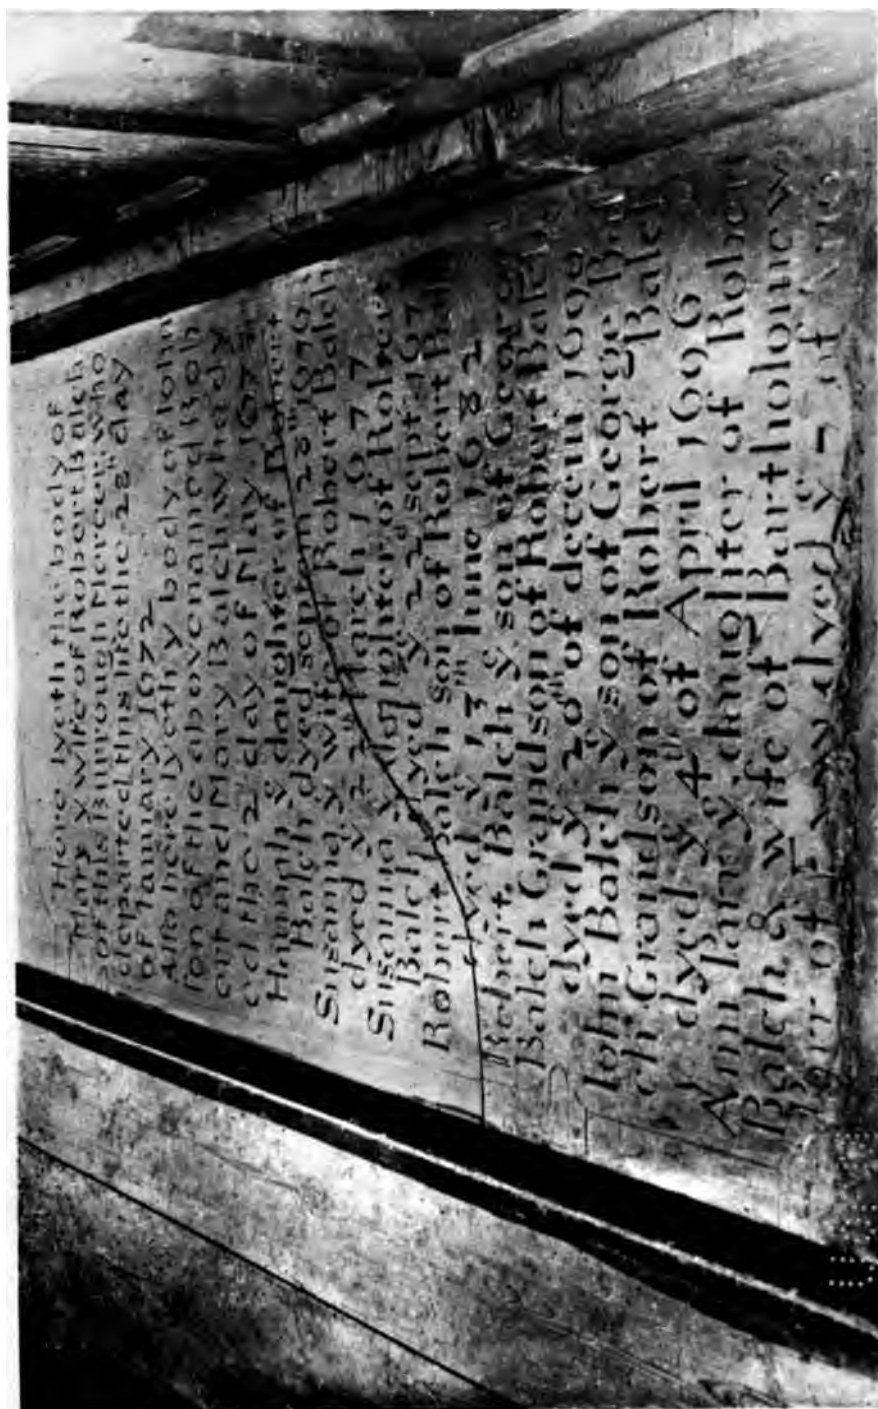 Here lyeth the body of
Mary yͤ wife of Robert Balch
of this Burrough Mercer: who
departed this life the 28ᵗʰ day
of Ianuary 1672
Also here lyeth yͤ body of Iohn
son of the abovenamed Rob
ert and Mary Balch who dy
ed the 2ᵈ day of May 167
Hannah yͤ daughter of Robert
Balch dyed septm 28ᵗʰ 1676
Susanna yͤ wife of Robert Balch
dyed yͤ 22ᵗʰ March 1677
Susanna daughter of Robert
Balch dyed yͤ 22ᵈ sept 167
Robert Balch son of Robert Balc
dyed yͤ 13ᵗʰ Iune 1682
Robert Balch yͤ son of Georg
Balch Grandson of Robert Balch
dyed yͤ 20ᵗʰ of decem 169
Iohn Balch yͤ son of George Bal
ch Grandson of Robert Balch
dyed yͤ 4ᵗʰ of April 1696
Ann daughter of Rober
Balch & wife of Bartholomew
dyed yͤ of